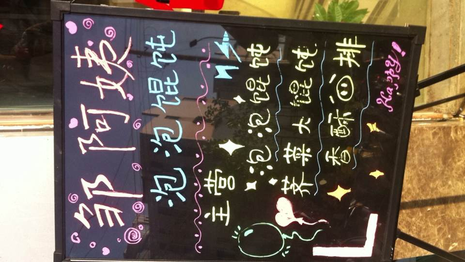 邹阿姨
泡泡馄饨
主营
泡泡馄饨
荠菜大馄饨
香酥排
Happy!